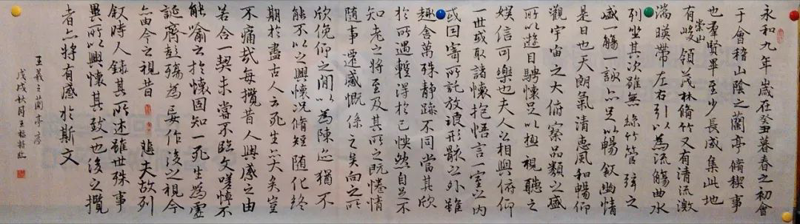 永和九年歲在癸丑暮春之初會
于會稽山陰之蘭亭脩稧事
也羣賢畢至少長咸集此地
有崇山峻領茂林脩竹又有清流激
湍暎帶左右引以為流觴曲水
列坐其次雖無絲竹管弦之
盛一觴一詠亦足以暢敘幽情
是日也天朗氣清惠風和暢仰
觀宇宙之大俯察品類之盛
所以遊目騁懷足以極視聽之
娛信可樂也夫人之相與俯仰
一世或取諸懷抱悟言一室之內
或因寄所託放浪形骸之外雖
趣舍萬殊靜躁不同當其欣
於所遇輕得於己怏然自足不
知老之將至及其所之既惓情
隨事遷感慨係之矣向之所
欣俛仰之閒以為陳迹猶不
能不以之興懷況脩短隨化終
期於盡古人云死生亦大矣豈
不痛哉每攬昔人興感之由
若合一契未嘗不臨文嗟悼不
能喻之於懷固知一死生為虛
誕齊彭殤為妄作後之視今
亦由今之視昔悲夫故列
敘時人錄其所述雖世殊事
異所以興懷其致一也後之攬
者亦將有感於斯文
王羲之蘭亭序
戊戌秋月王